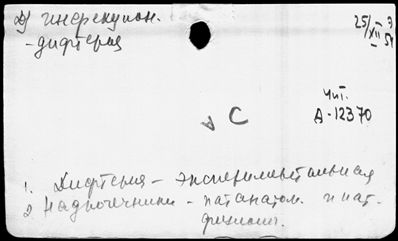 Д) инфекцион.
- дифтерия
25/XII 3
54
Чит.
А-12370
А С
1. Дифтерия - экспериментальная
2 Надпочечники - патанатом. и пат-
физиол.